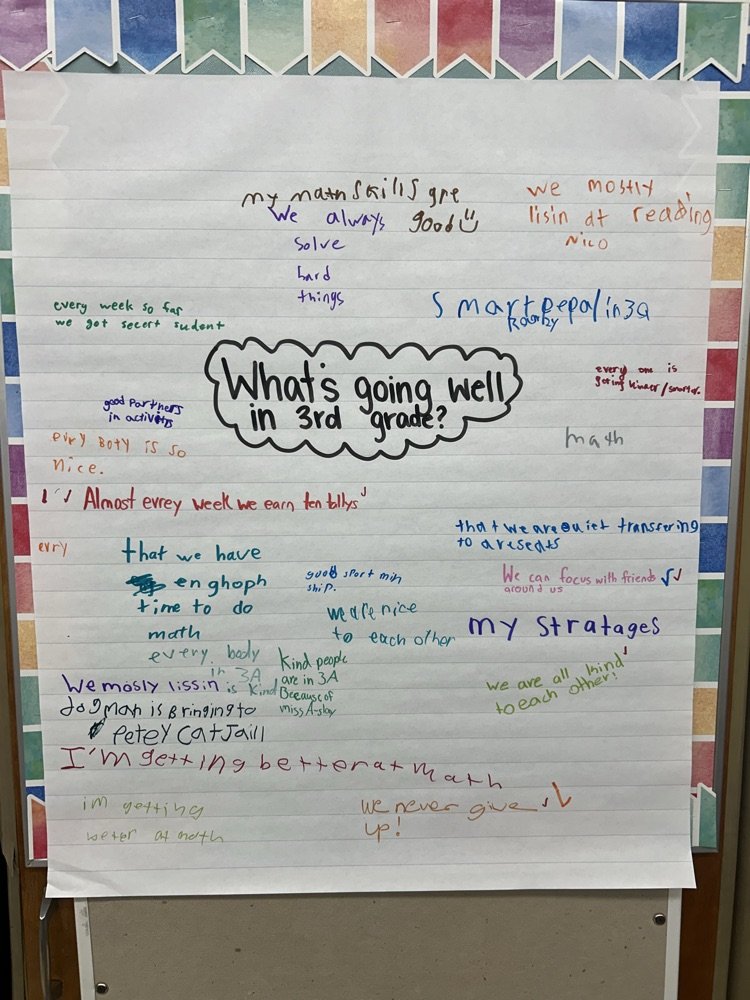 my math skills are
good
We always
solve
hard
things
we mostly
lisin at reading
Nico
every week so far
we got secert sudent
Smart pepal in 3a
What's going well
in 3rd grade?
every one is
geting kinder/smarter.
good partners
in activitis
math
evry boty is so
nice.
Almost evrey week we earn ten tallys
that we are quiet transfering
to are seats
evry
that we have
enghoph
time to do
math
good sport min
ship.
We can focus with friends
around us
we are nice
to each other
my stratages
every body
in 3A
is kind
Kind people
are in 3A
Beeause of
miss A-slay
we are all kind
to each other!
We mosly lissin
dogman is Bringing to
Petey Cat Jaill
I'm getting better at math
im getting
at math
we never give
up!